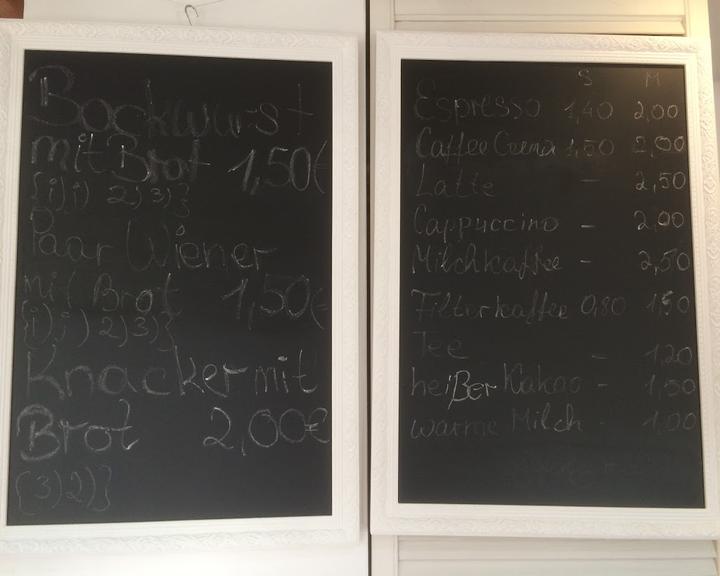 Bockwurst
mit Brot 1,50€
{i),j) 2) 3)}
Paar Wiener
mit Brot 1,50€
{i),j) 2) 3)}
Knacker mit
Brot 2,00€
{3) 2)}
S M
Espresso 1,40 2,00
Caffee Crema 1,50 2,00
Latte - 2,50
Cappuccino - 2,00
Milchkaffee - 2,50
Filterkaffee 0,80 1,50
Tee - 1,20
heißer Kakao - 1,50
warme Milch - 1,00